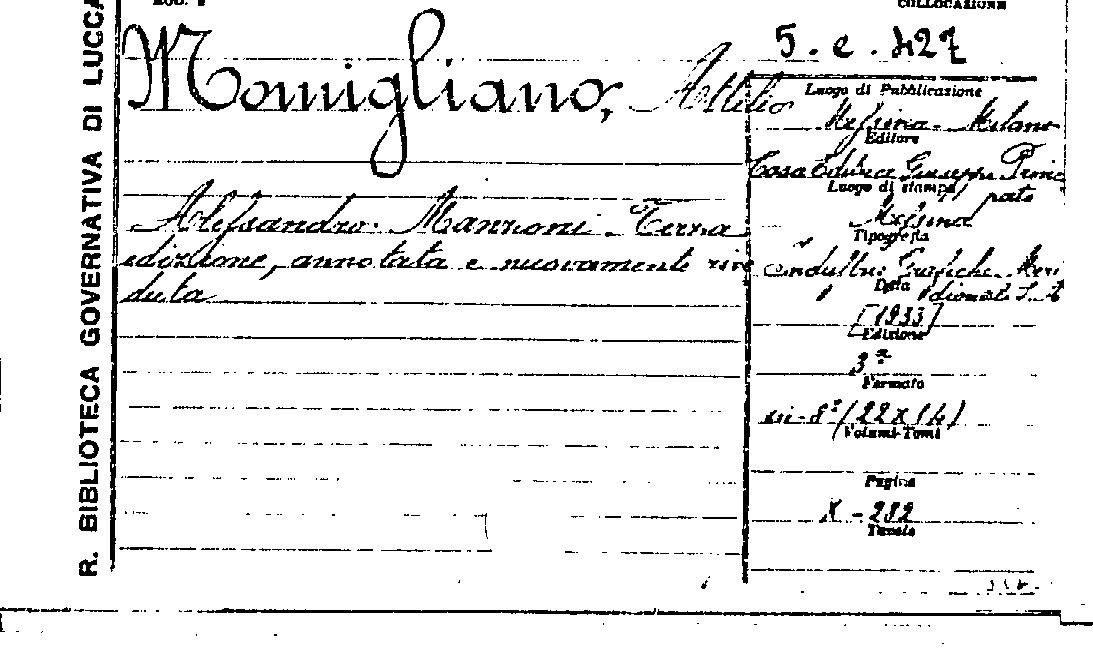 R. BIBLIOTECA GOVERNATIVA DI LUCCA
MOD. 2
COLLOCAZIONE
5. e. 427
Momigliano, Attilio
Alessandro Manzoni. Terza
edizione, annotata e nuovamente rive
duta
Luogo di Pubblicazione
Messina - Milano
Editore
Casa Editrice Giuseppe Princi
pato
Luogo di stampa
Messina
Tipografia
Industrie Grafiche Meri
dionali S. A
Data
[1933]
Edizione
3ª
Formato
in-8° (22x14)
Volumi-Tomi
Pagine
X - 282
Tavole